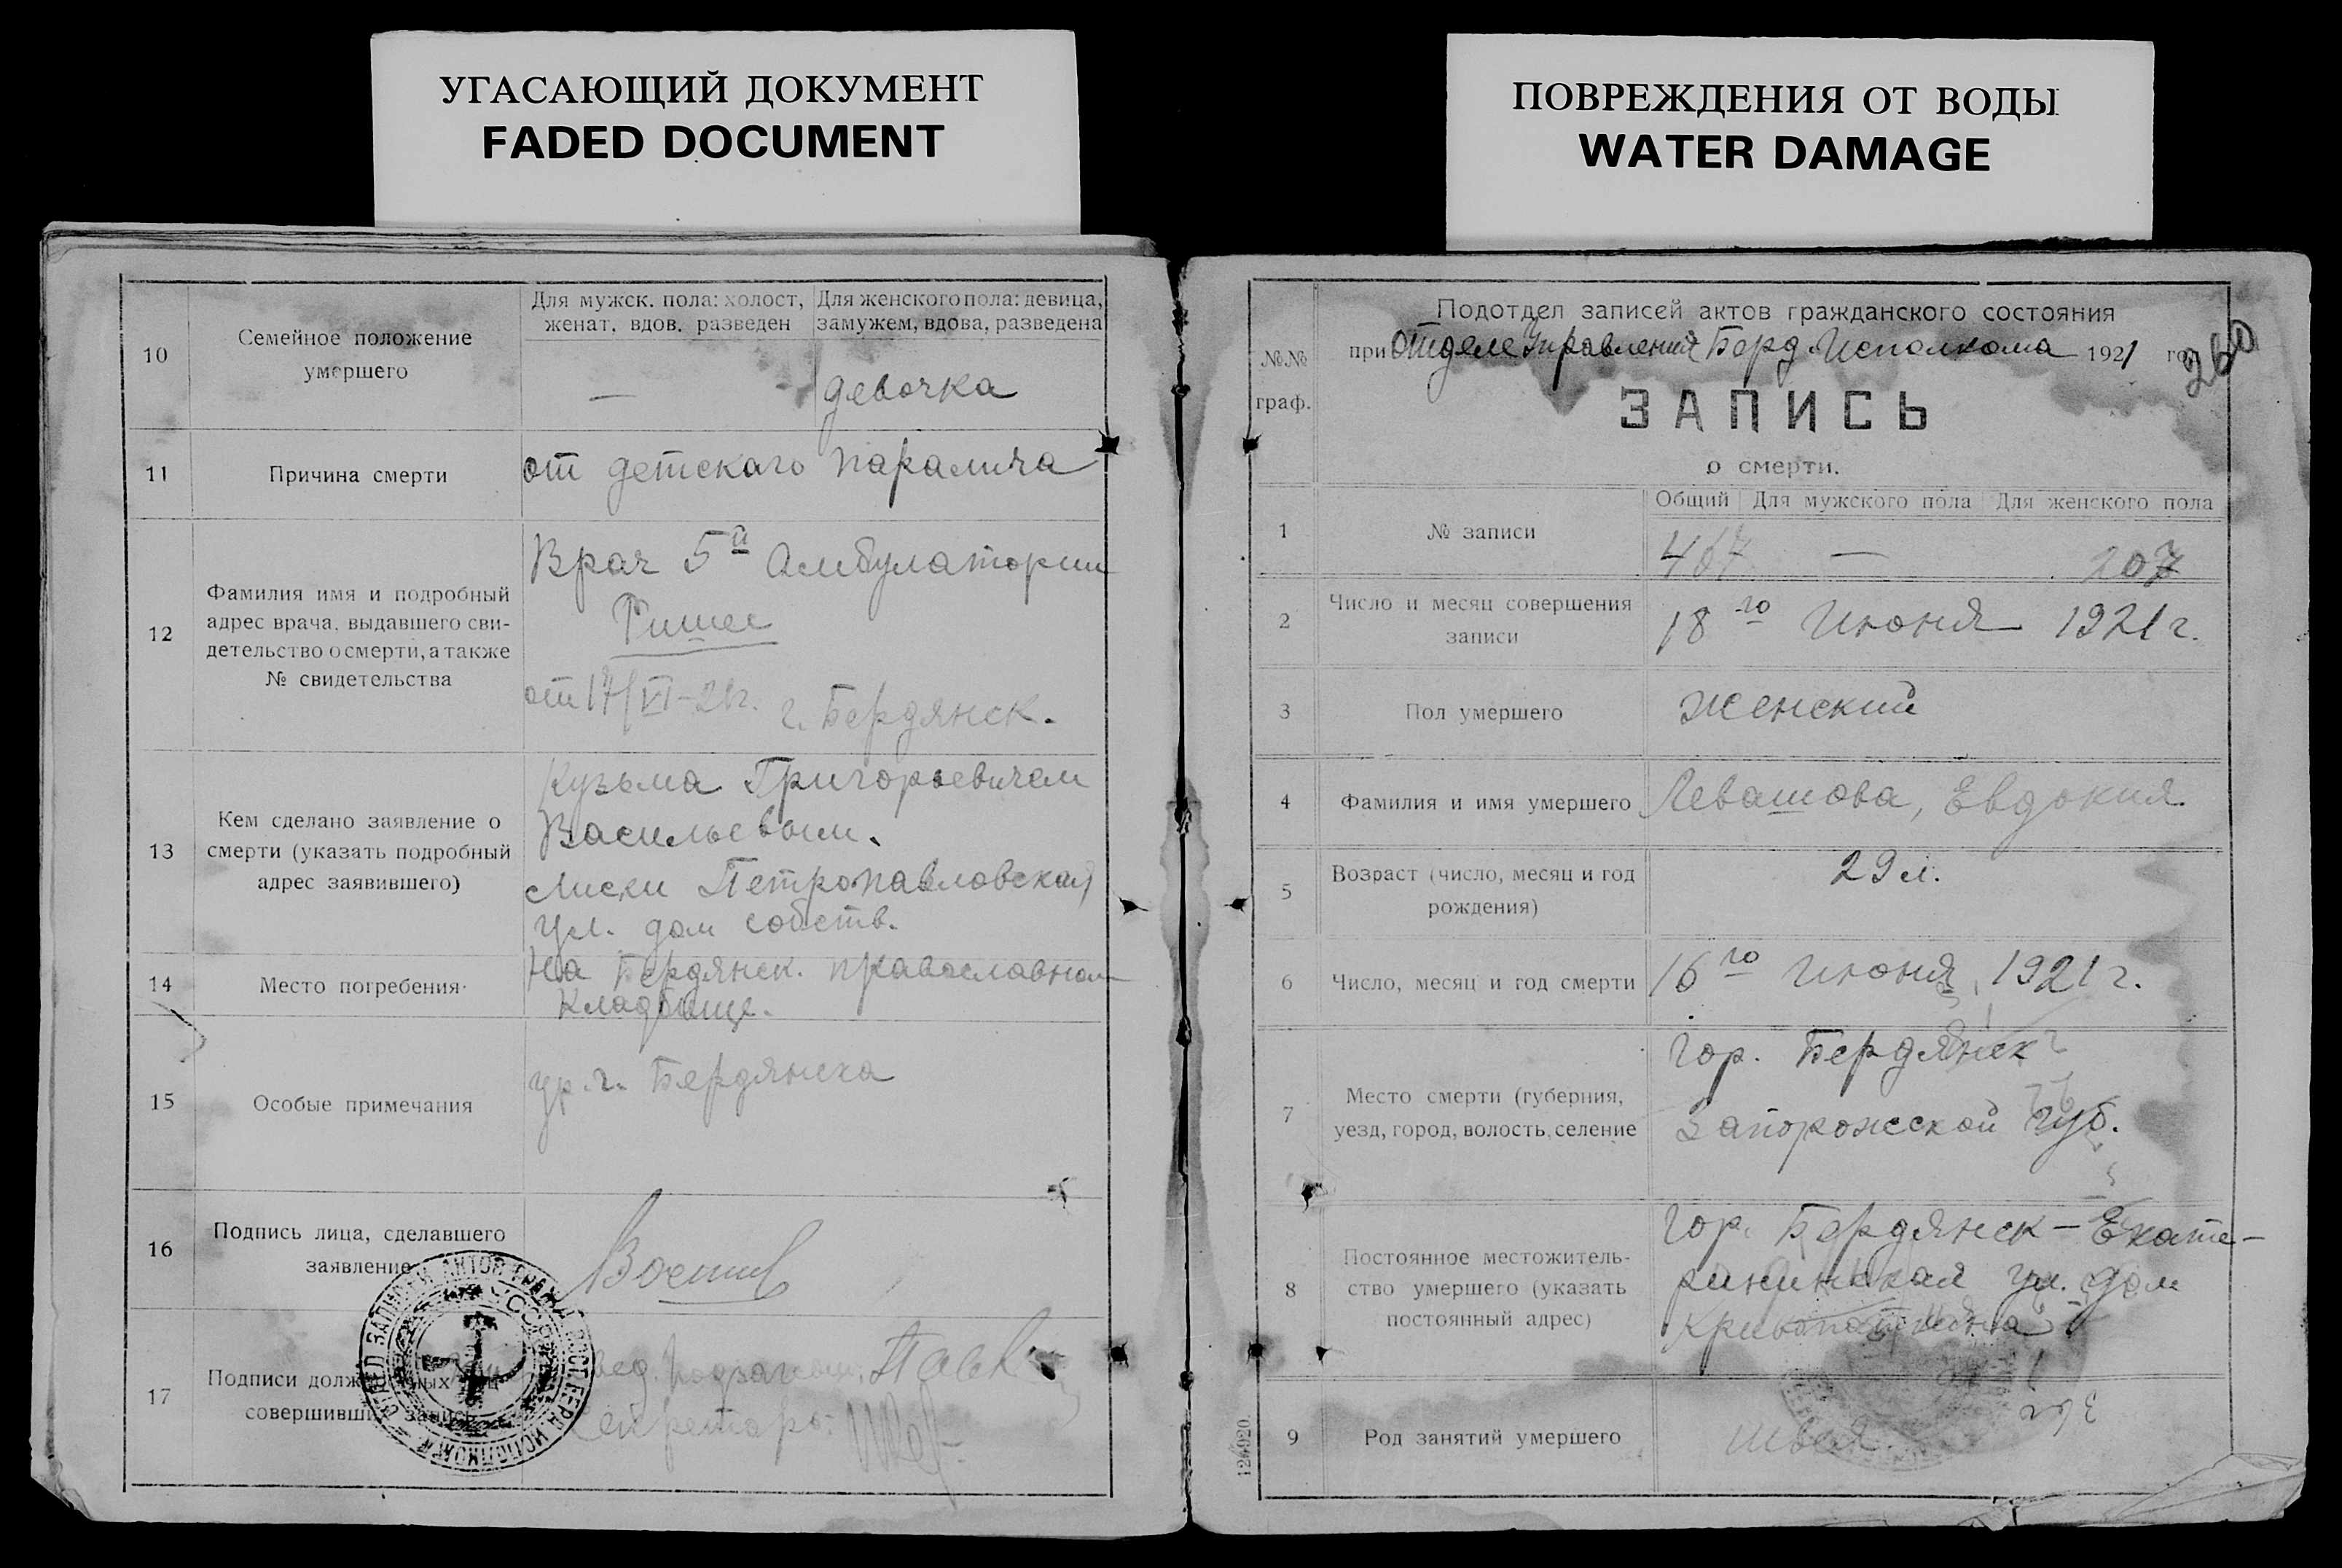 УГАСАЮЩИЙ ДОКУМЕНТ
FADED DOCUMENT
ПОВРЕЖДЕНИЯ ОТ ВОДЫ
WATER DAMAGE
10
Семейное положение
умершего
Для мужск. пола: холост,
женат, вдов, разведен
Для женского пола: девица,
замужем, вдова, разведена
—
девочка
11
Причина смерти
от детскаго паралича
12
Фамилия имя и подробный
адрес врача, выдавшего сви-
детельство о смерти, а также
№ свидетельства
Врач 5й Амбулатории
от 17/VI-21г. г. Бердянск.
13
Кем сделано заявление о
смерти (указать подробный
адрес заявившего)
Кузьма Григорьевичем
Васильевым.
Лиски Петропавловская
ул. дом собств.
14
Место погребения
На Бердянск. православном
кладбище.
15
Особые примечания
ур. г. Бердянска
16
Подпись лица, сделавшего
заявление
17
Подписи должностных лиц
совершивших запись
Секретарь:
№№
граф.
Подотдел записей актов гражданского состояния
при Отделе Управления Берд. Исполкома 1921 год
260
ЗАПИСЬ
о смерти.
1
№ записи
Общий Для мужского пола Для женского пола
467 — 207
2
Число и месяц совершения
записи
18го Июня 1921 г.
3
Пол умершего
женский
4
Фамилия и имя умершего
Левашова, Евдокия.
5
Возраст (число, месяц и год
рождения)
29 л.
6
Число, месяц и год смерти
16го Июня, 1921 г.
7
Место смерти (губерния,
уезд, город, волость, селение
Гор. Бердянск
Запорожской губ.
8
Постоянное местожитель-
ство умершего (указать
постоянный адрес)
Гор. Бердянск - Екате-
рининская ул. дом
9
Род занятий умершего
швея.